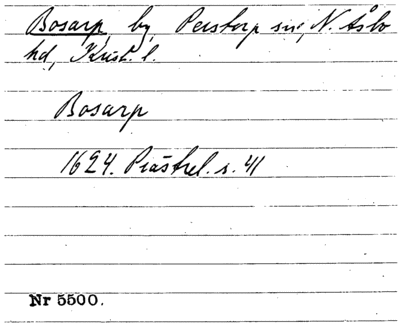 Bosarp, by, Perstorp sn, N. Åsbo
hd, Krist. l.
Bosarp
1624. Prästrel. s. 41
Nr 5500.